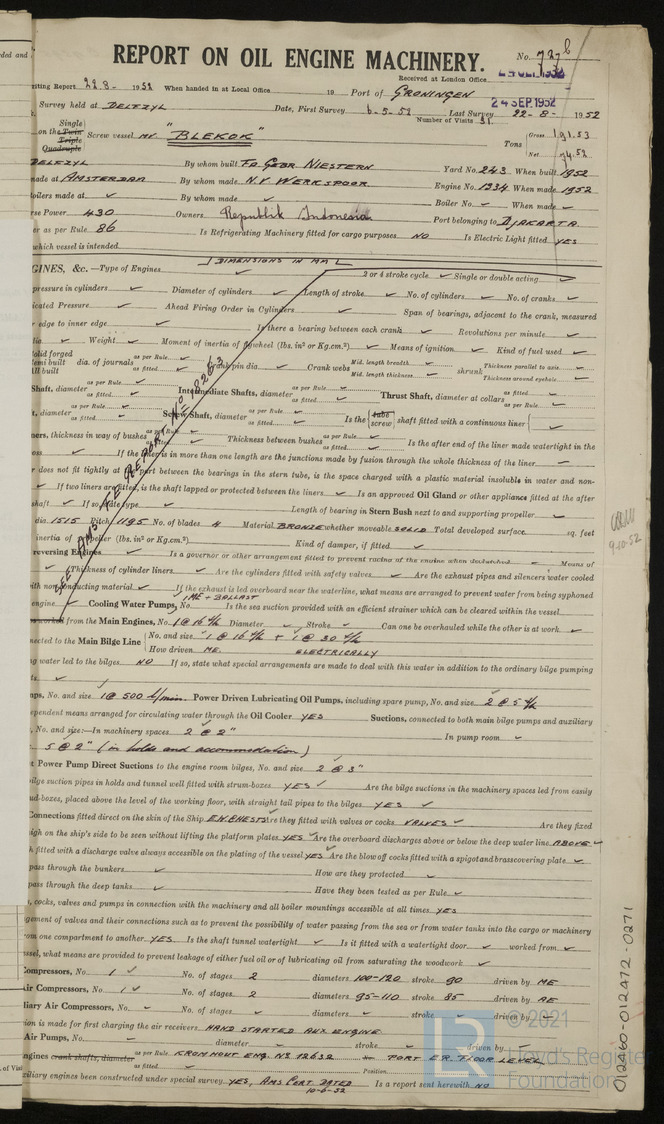 REPORT ON OIL ENGINE MACHINERY.
No. 727b
Received at London Office
24 SEP 1952
Writing Report 22.8- 1952 When handed in at Local Office 19 Port of GRONINGEN
Survey held at DELFZYL Date, First Survey 6-5-52 Last Survey 22-8- 1952
Number of Visits 31
on the Single Twin Triple Quadruple Screw vessel MV "BLEKOK" Tons Gross 191.53 Net 74.52
DELFZYL By whom built FA GEBR NIESTERN Yard No. 243 When built 1952
made at AMSTERDAM By whom made N.V. WERKSPOOR Engine No. 1334 When made 1952
Boilers made at By whom made Boiler No. When made
Horse Power 430 Owners Republik Indonesia Port belonging to DJAKARTA
er as per Rule 86 Is Refrigerating Machinery fitted for cargo purposes NO Is Electric Light fitted YES
which vessel is intended
DIMENSIONS IN MM
GINES, &c.—Type of Engines 2 or 4 stroke cycle Single or double acting
pressure in cylinders Diameter of cylinders Length of stroke No. of cylinders No. of cranks
icated Pressure Ahead Firing Order in Cylinders Span of bearings, adjacent to the crank, measured
edge to inner edge Is there a bearing between each crank Revolutions per minute
Weight Moment of inertia of flywheel (lbs. in² or Kg.cm.²) Means of ignition Kind of fuel used
Solid forged dia. of journals as per Rule as fitted Crank pin dia. Crank webs Mid. length breadth Mid. length thickness shrunk Thickness parallel to axis Thickness around eyehole
Shaft, diameter as per Rule as fitted Intermediate Shafts, diameter as per Rule as fitted Thrust Shaft, diameter at collars as fitted as per Rule
t, diameter as per Rule as fitted Screw Shaft, diameter as per Rule as fitted Is the tube screw shaft fitted with a continuous liner
ners, thickness in way of bushes as per Rule as fitted Thickness between bushes as per Rule as fitted Is the after end of the liner made watertight in the
oss If the liner is in more than one length are the junctions made by fusion through the whole thickness of the liner
does not fit tightly at the part between the bearings in the stern tube, is the space charged with a plastic material insoluble in water and non-
If two liners are fitted, is the shaft lapped or protected between the liners Is an approved Oil Gland or other appliance fitted at the after
shaft If so, state type Length of bearing in Stern Bush next to and supporting propeller
dia. 1515 Pitch 1195 No. of blades 4 Material BRONZE whether moveable SOLID Total developed surface sq. feet
inertia of propeller (lbs. in² or Kg.cm.²) Kind of damper, if fitted
reversing Engines Is a governor or other arrangement fitted to prevent racing of the engine when declutched Means of
Thickness of cylinder liners Are the cylinders fitted with safety valves Are the exhaust pipes and silencers water cooled
with non-conducting material If the exhaust is led overboard near the waterline, what means are arranged to prevent water from being syphoned
engine Cooling Water Pumps, No. 1 ME + BALLAST Is the sea suction provided with an efficient strainer which can be cleared within the vessel
worked from the Main Engines, No. 1 @ 16 T/h Diameter Stroke Can one be overhauled while the other is at work
nected to the Main Bilge Line No. and size 1 @ 16 T/h + 1 @ 30 T/h
How driven ME ELECTRICALLY
ng water led to the bilges NO If so, state what special arrangements are made to deal with this water in addition to the ordinary bilge pumping
ts.
mps, No. and size 1 @ 500 l/min. Power Driven Lubricating Oil Pumps, including spare pump, No. and size 2 @ 5 T/h
ependent means arranged for circulating water through the Oil Cooler YES Suctions, connected to both main bilge pumps and auxiliary
, No. and size:—In machinery spaces 2 @ 2" In pump room
5 @ 2" (in holds and accommodation)
t Power Pump Direct Suctions to the engine room bilges, No. and size 2 @ 3"
bilge suction pipes in holds and tunnel well fitted with strum-boxes YES Are the bilge suctions in the machinery spaces led from easily
ud-boxes, placed above the level of the working floor, with straight tail pipes to the bilges YES
Connections fitted direct on the skin of the Ship E.W. CHESTS Are they fitted with valves or cocks VALVES Are they fixed
high on the ship's side to be seen without lifting the platform plates YES Are the overboard discharges above or below the deep water line ABOVE
h fitted with a discharge valve always accessible on the plating of the vessel YES Are the blow off cocks fitted with a spigot and brass covering plate
pass through the bunkers How are they protected
pass through the deep tanks Have they been tested as per Rule
, cocks, valves and pumps in connection with the machinery and all boiler mountings accessible at all times YES
gement of valves and their connections such as to prevent the possibility of water passing from the sea or from water tanks into the cargo or machinery
rom one compartment to another YES Is the shaft tunnel watertight Is it fitted with a watertight door worked from
ssel, what means are provided to prevent leakage of either fuel oil or of lubricating oil from saturating the woodwork
Compressors, No. 1 No. of stages 2 diameters 100-120 stroke 90 driven by ME
Air Compressors, No. 1 No. of stages 2 diameters 95-110 stroke 85 driven by AE
liary Air Compressors, No. No. of stages diameters stroke driven by
ion is made for first charging the air receivers HAND STARTED AUX ENGINE
Air Pumps, No. diameter stroke driven by
ngines crank shafts, diameter as per Rule as fitted KROMHOUT ENG. No 12632 Position PORT E.R. FLOOR LEVEL
xiliary engines been constructed under special survey YES, AMS CERT DATED 10-6-52 Is a report sent herewith NO
SEE AMS F.E. REPORT No 18263
9-10-52
012460-012472-0271
© 2021
Lloyd's Register
Foundation